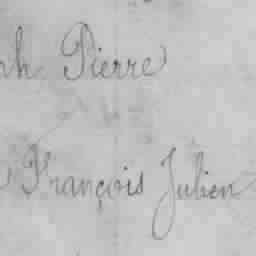 ph Pierre
François Julien